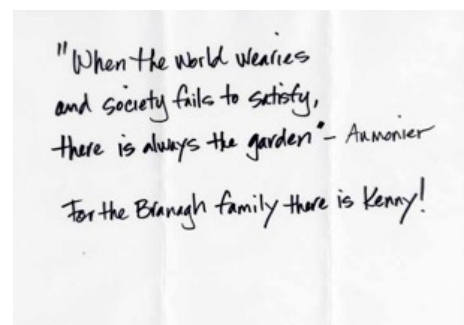 "When the world wearies
and society fails to satisfy,
there is always the garden" - Aumonier
For the Branagh family there is Kenny!